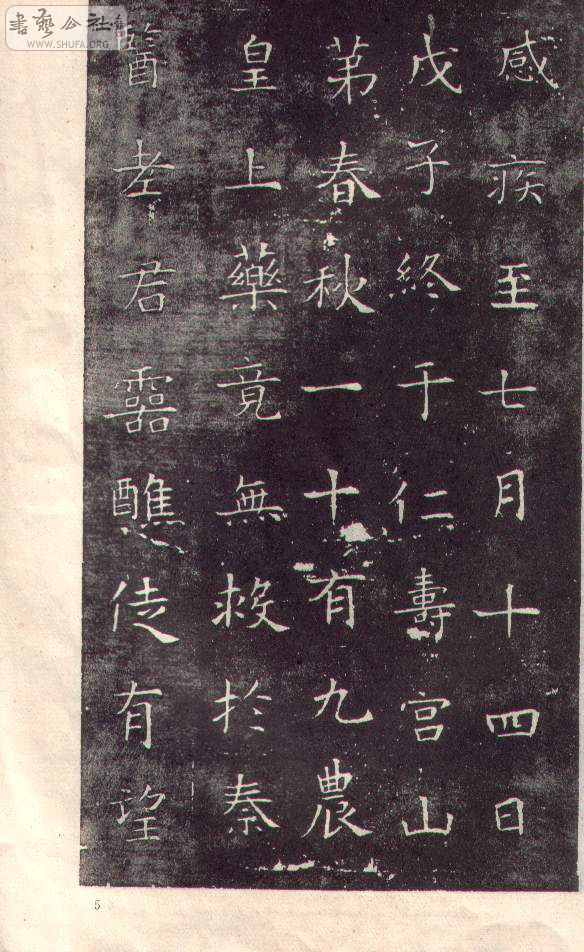 書藝公社
WWW.SHUFA.ORG
感疾至七月十四日
戊子終于仁壽宮山
苐春秋一十有九農
皇上藥竟無救於秦
醫老君靈醮徒有望
5